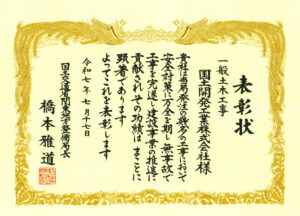 表彰状
一般土木工事
国土開発工業株式会社 様
貴社は当局発注の戦略の工事において
安全対策に万全を期し無事故で
工事を完遂し建設事業の推進に
貢献されその功績はまことに
顕著であります
よってこれを表彰します
令和七年七月十七日
国土交通省関東地方整備局長
橋本雅道